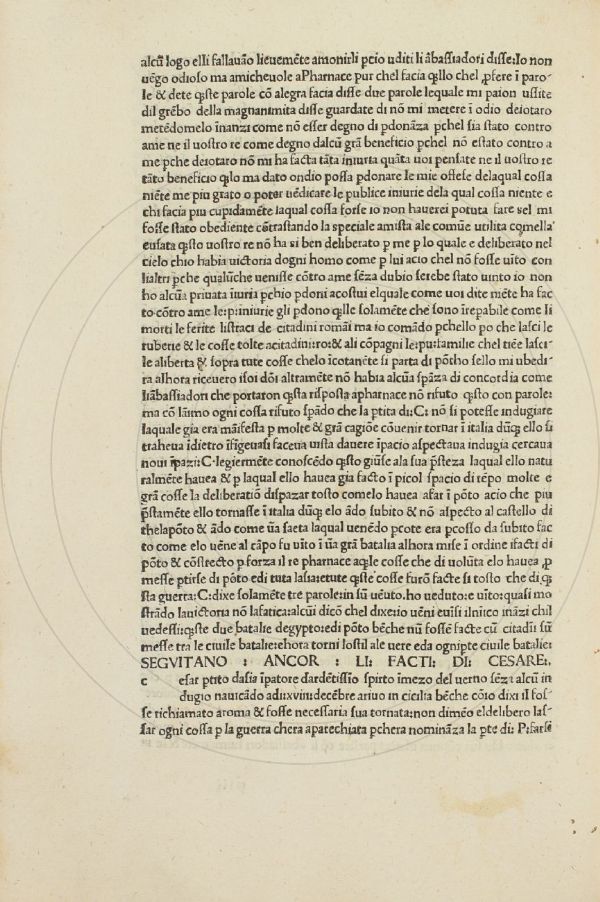 alcũ logo elli fallavão lieuemẽte amonirli pcio uditi li ãbassiadori disse:Io non
uẽgo odioso ma amicheuole aPharnace pur chel facia qllo chel pfere ĩ paro-
le & dete qste parole cõ alegra facia disse due parole lequale mi paion ussite
dil grẽbo della magnanimita disse guardate di nõ mi metere ĩ odio deiotaro
metẽdomelo ĩnanzi come nõ esser degno di pdonãza pchel sia stato contro
a me ne il uostro re come degno dalcũ grã beneficio pchel nõ estato contro a
me pche deiotaro nõ mi ha facta tãta iniurta quãta uoi pensate ne il uostro re
tãto beneficio qllo ma dato ondio possa pdonare le mie offese delaqual cossa
niẽte me piu grato o poter uẽdicare le publice iniurie dela qual cossa niente e
chi facia piu cupidamẽte laqual cossa forse io non hauerei potuta fare sel mi
fosse stato obediente cõtrastando la speciale amista ale comũe utilita cõmella
eusata qsto uostro re nõ ha si ben deliberato p me p lo quale e deliberato nel
cielo chio habia uictoria dogni homo come p lui acio chel nõ fosse uĩto con
lialtri pche qualũche uenisse cõtro ame sẽza dubio serebe stato uinto io non
ho alcũa priuata ĩiuria pchio pdoni acostui elquale come uoi dite mẽte ha fac
to cõtro ame le:p:iniurie gli pdono qlle solamẽte che sono ĩrepabile come li
morti le ferite listraci de citadini romãi ma io comãdo pchello po che lasci le
ruberie & le cosse tolte acitadini:ro:& ali cõpagni le:pu:familie chel tiẽe lasci-
le aliberta & sopra tute cosse chelo ĩcotanẽte si parta di põtho sello mi ubedi-
ra alhora riceuero isoi dõi altramẽte nõ habia alcũa spãza di concordia come
liãbassiadori che portaron qsta risposta apharnace nõ rifuto qsto con parole:
ma cõ lãimo ogni cossa rifuto spãdo che la ptita di:C: nõ si potesse indugiare
laquale gia era mãifesta p molte & grã cagiõe cõuenir tornar ĩ italia dũq ello si
traheua ĩdietro ĩfigeuasi faceua uista dauere ĩpacio aspectaua indugia cercaua
noui ĩpazi:C:legiermẽte conoscẽdo qsto giũse ala sua psteza laqual ello natu
ralmẽte hauea & p laqual ello hauea gia facto ĩ picol spacio di tẽpo molte e
grã cosse la deliberatiõ dispazar tosto comelo hauea afar ĩ põto acio che piu
pstamẽte ello tornasse ĩ italia dũq elo ãdo subito & nõ aspecto al castello di
thelapõto & ãdo come ũa saeta laqual uenẽdo pcote era pcosso da subito fac
to come elo uẽne al cãpo fu uĩto ĩ ũa grã batalia alhora mise ĩ ordine ifacti di
põto & cõstrecto p forza il re pharnace aqle cosse che di uolũta elo hauea p
messe ptirse di põto edi tuta lasia:etute qste cosse furõ facte si tosto che di q
sta guerra:C:dixe solamẽte tre parole:in sũ uẽuto.ho ueduto:e uito:quasi mo
strãdo lauictoria nõ lafatica:alcũi dicõ chel dixe:io uẽni euĩsi ilnĩico inãzi chil
uedessi:qste due batalie degypto:edi põto bẽche nũ fossẽ facte cũ citadĩi sũ
messe tra le ciuile batalie:ehora torni lostil ale uere eda ognipte ciuile batalie:
SEGVITANO : ANCOR : LI: FACTI: DI: CESARE:.
c esar ptito dasia ĩpatore dardẽtissio spirto ĩmezo del uerno sẽza alcũ in
dugio nauicãdo adi:xvii:decẽbre ariuo in cicilia bẽche cõio dixi il fos-
se richiamato aroma & fosse necessaria sua tornata:non dimẽo eldelibero las-
sar ogni cossa p la guerra chera aparechiata pchera nominãza la pte di: P:farsẽ